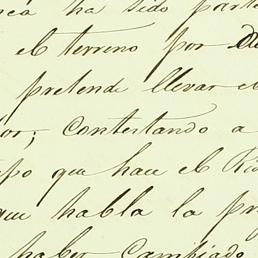 ha sido parte
el terreno por
pretende llevar el
or; contestando a
po que hace el Rio
que habla la pr
haber cambiado